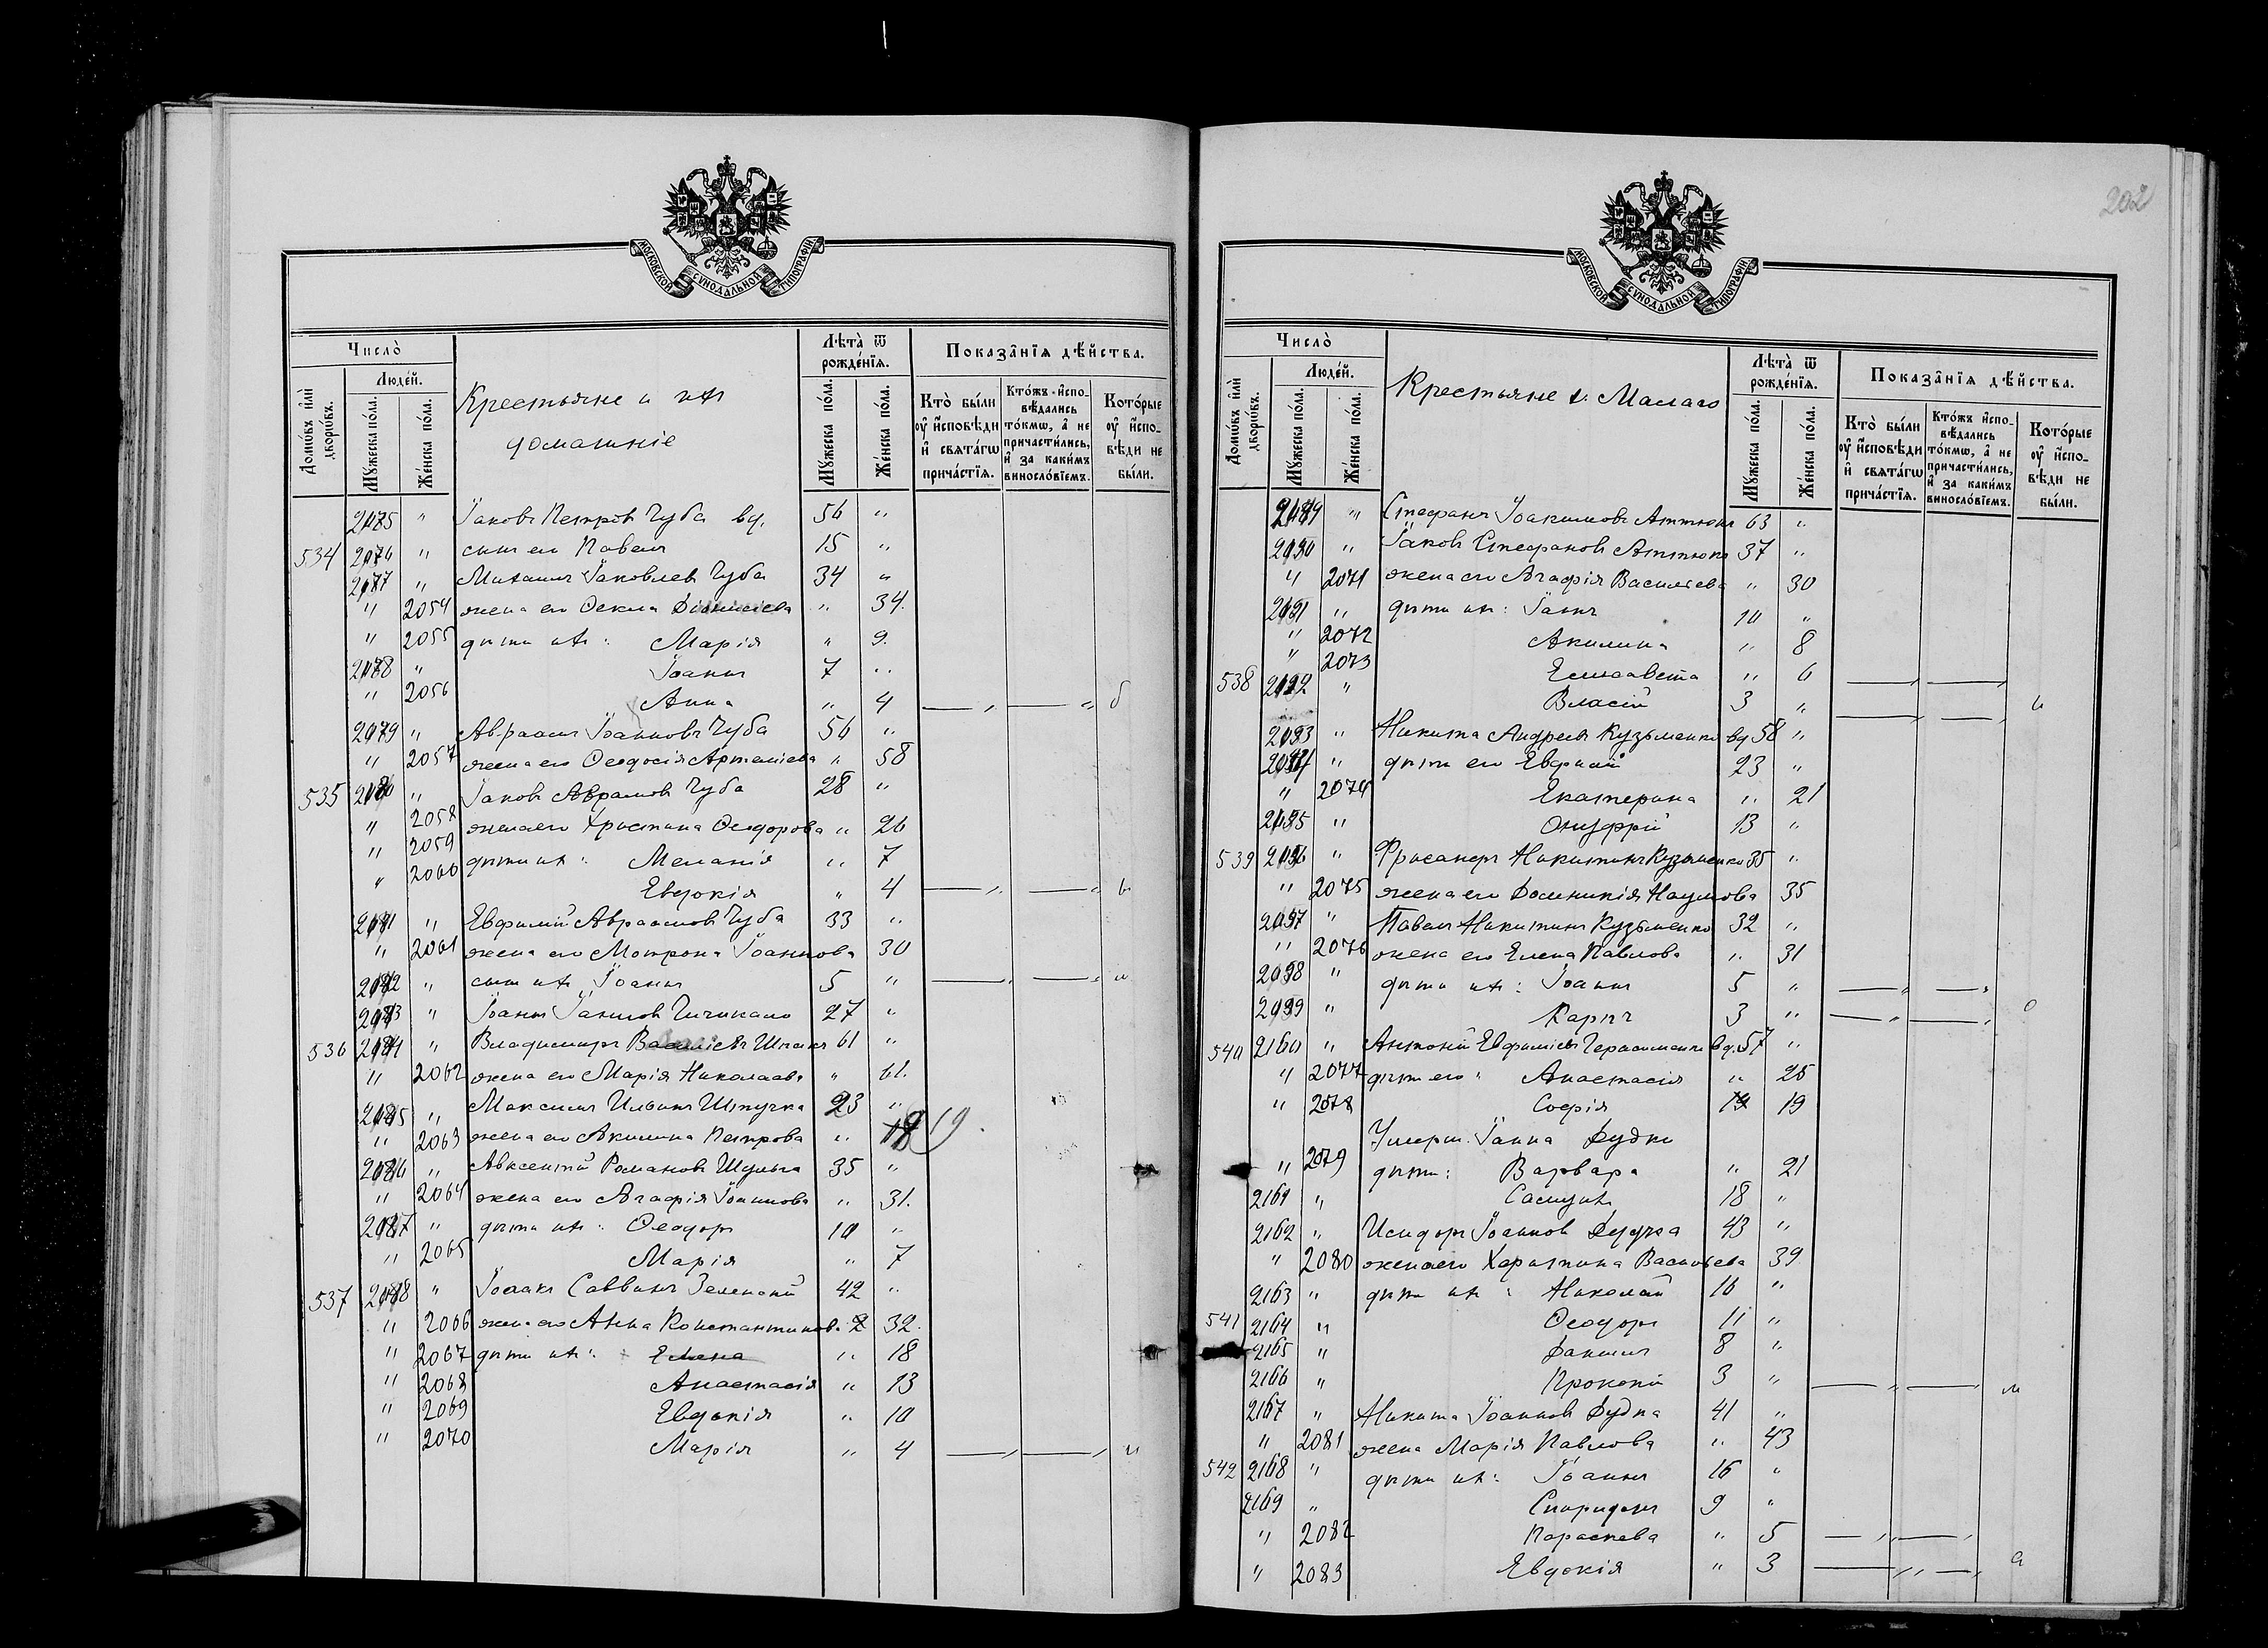 202
МОСКОВСКОЙ СѴНОДАЛЬНОЙ ТИПОГРАФІИ
Число̀
Люде́й.
Домѡ́въ и҆лѝ дворѡ́въ.
Мꙋ́жеска по́ла.
Же́нска по́ла.
Крестьяне и ихъ
домашніе
Лѣ́та ѿ рожде́нїѧ.
Мꙋ́жеска по́ла.
Же́нска по́ла.
Показа̑нїѧ дѣ́йства.
Кто̀ бы́ли ᲂу҆ и҆сповѣди и҆ свѧта́гѡ прича́стїѧ.
Кто́жъ и҆сповѣ́дались то́кмѡ, а҆ не причасти́лись, и҆ за каки́мъ винословїемъ.
Кото́рые ᲂу҆ и҆сповѣди не бы́ли.
2075 " Іаковъ Петровъ Чуба вд. 56 "
534 2076 " сынъ его Павелъ 15 "
2077 " Михаилъ Іаковлевъ Чуба 34 "
" 2054 жена его Ѳекла 34.
" 2055 дѣти ихъ: Марія " 9.
2078 " Іоаннъ 7 "
" 2056 Анна " 4
2079 " Авраамъ Іоанновъ Чуба 56 "
" 2057 жена его Ѳеодосія Артеміева " 58
535 2080 " Іаковъ Авраамовъ Чуба 28 "
" 2058 жена его Христина Ѳеодорова " 26
" 2059 дѣти ихъ: Меланія " 7
" 2060 Евдокія " 4
2081 " Евфимій Авраамовъ Чуба 33 "
" 2061 жена его Мотрона Іоаннова 30
2082 " сынъ ихъ Іоаннъ 5 "
2083 " Іоаннъ 27 "
536 2084 " Владимиръ 61 "
" 2062 жена его Марія Николаева " 61.
2085 " Максимъ Ильинъ 23 "
" 2063 жена его Акилина Петрова " 19.
2086 " Авксентій Романовъ Шульга 35 "
" 2064 жена его Агафія Іоаннова " 31.
2087 " дѣти ихъ: Ѳеодоръ 10 "
" 2065 Марія " 7
537 2088 " Саввинъ Зеленый 42 "
" 2066 жена его Анна Константинова 32.
" 2067 дѣти ихъ: Елена " 18
" 2068 Анастасія " 13
" 2069 Евдокія " 10
" 2070 Марія " 4
МОСКОВСКОЙ СѴНОДАЛЬНОЙ ТИПОГРАФІИ
Число̀
Люде́й.
Домѡ́въ и҆лѝ дворѡ́въ.
Мꙋ́жеска по́ла.
Же́нска по́ла.
Крестьяне
Лѣ́та ѿ рожде́нїѧ.
Мꙋ́жеска по́ла.
Же́нска по́ла.
Показа̑нїѧ дѣ́йства.
Кто̀ бы́ли ᲂу҆ и҆сповѣди и҆ свѧта́гѡ прича́стїѧ.
Кто́жъ и҆сповѣ́дались то́кмѡ, а҆ не причасти́лись, и҆ за каки́мъ винословїемъ.
Кото́рые ᲂу҆ и҆сповѣди не бы́ли.
2089 " Стефанъ Іоакимовъ 63 "
2090 " Іаковъ Стефановъ 37 "
" 2071 жена его Агафія Васильева " 30
2091 " дѣти ихъ: 10 "
" 2072 Акилина " 8
" 2073 Елисавета " 6
538 2092 " Власій 3 "
2093 " Никита Андреевъ Кузьменко вд 58 "
2094 " дѣти его Евфимій 23 "
" 2074 Екатерина " 21
2095 " Онуфрій 13 "
539 2096 " Никитинъ Кузьменко 35 "
" 2075 жена его Домникія Наумова 35
2097 " Павелъ Никитинъ Кузьменко 32 "
" 2076 жена его Елена Павлова " 31
2098 " дѣти ихъ: Іоаннъ 5 "
2099 " Карпъ 3 "
540 2160 " Антоній Евфиміевъ Герасименко вд. 57 "
" 2077 дѣти его: Анастасія " 25
" 2078 Софія 19
Умерш. Дудки
" 2079 дѣти: Варвара " 21
2161 " 18 "
2162 " Исидоръ Іоанновъ Дудка 43 "
" 2080 жена его Харитина Васильева 39
2163 " дѣти ихъ: Николай 16 "
541 2164 " Ѳеодоръ 11 "
2165 " Даніилъ 8 "
2166 " Прокопій 3 "
2167 " Никита Іоанновъ Дудка 41 "
" 2081 жена Марія Павлова " 43
542 2168 " дѣти ихъ: Іоаннъ 16 "
2169 " Спиридонъ 9 "
" 2082 Параскева " 5
" 2083 Евдокія " 3